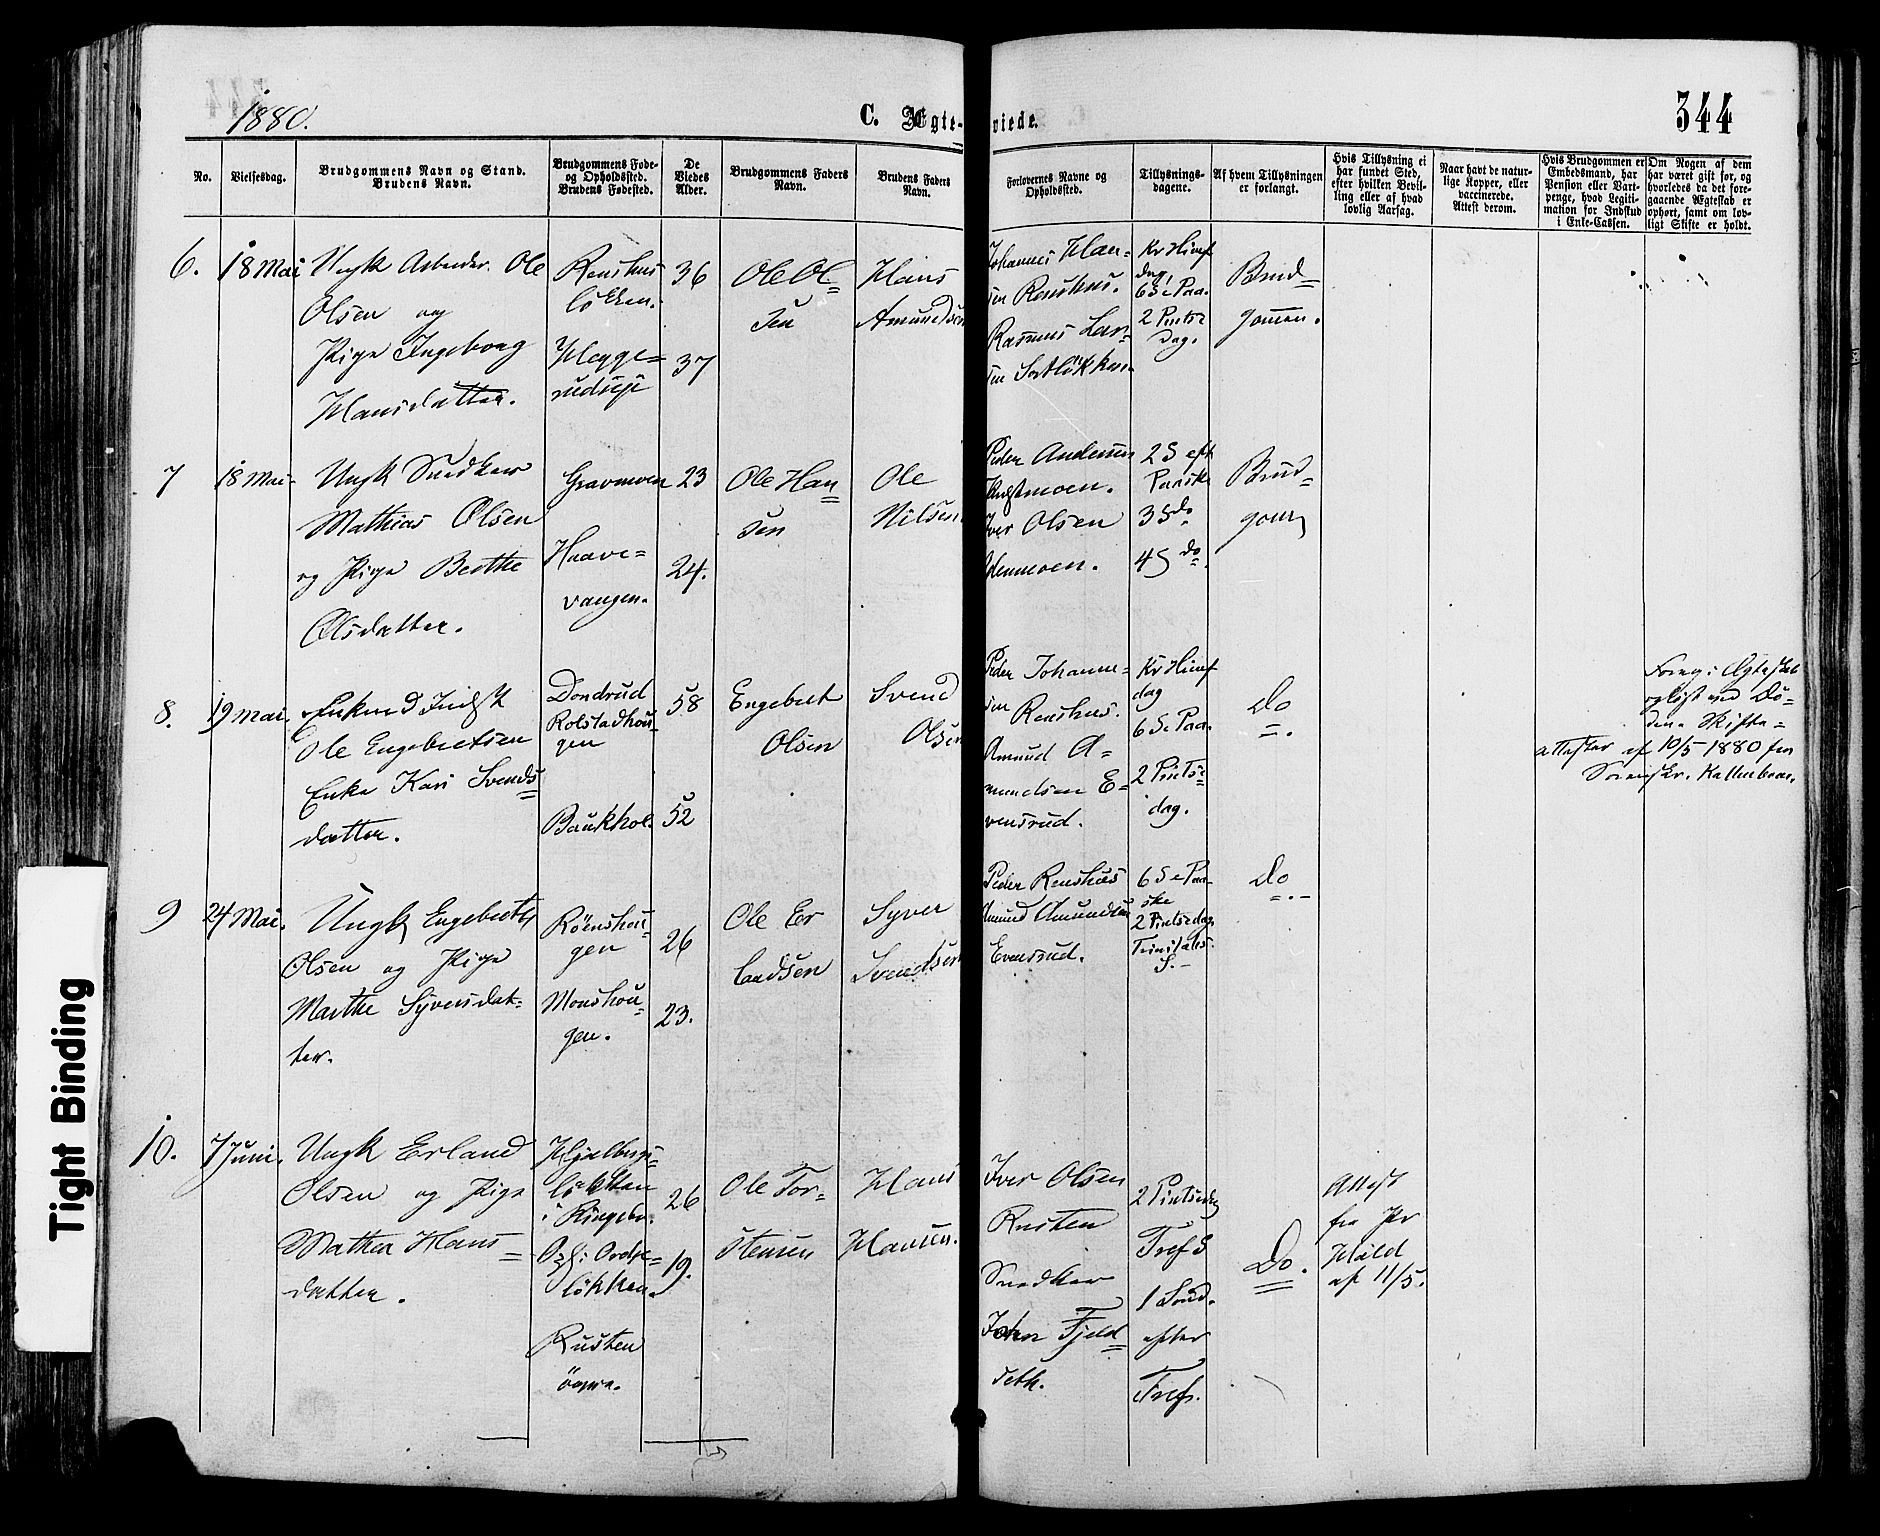 344
1880.
C. Ægte-
viede.
No.
Vielsesdag.
Brudgommens Navn og Stand.
Brudens Navn.
Brudgommens Føde-
og Opholdssted.
Brudens Fødested.
De
Viedes
Alder.
Brudgommens Faders
Navn.
Brudens Faders
Navn.
Forlovernes Navne og
Opholdssted.
Tillysnings-
dagene.
Af hvem Tillysningen
er forlangt.
Hvis Tillysning ei
har fundet Sted,
efter hvilken Bevil-
ling eller af hvad
lovlig Aarsag.
Naar havt de natur-
lige Kopper, eller
vaccinerede.
Attest derom.
Hvis Brudgommen er
Embedsmand, har
Pension eller Vart-
penge, hvad Legiti-
mation for Indskud
i Enke-Cassen.
Om Nogen af dem
har været gift før, og
hvorledes da det fore-
gaaende Ægteskab er
ophørt, samt om lov-
ligt Skifte er holdt.
6.
18 Mai
Ungk Arbeider Ole
Olsen og
Pige Ingeborg
Hansdatter.
Renshus
løkken.
Hegge=
rudseje
36
37
Ole Ol=
sen
Hans
Amundsen
Johannes Han-
sen Renshus.
Rasmus Lar-
sen
Kr Himf
dag
6 S e Paa.
2 Pintse
Dag.
Brud=
gommen.
7
18 Mai
Ungk Snedker
Mathias Olsen
og Pige Berthe
Olsdatter.
Gravmoen
Haave=
vangen.
23
24.
Ole Han=
sen
Ole
Nilsen
Peder Andersen
Iver Olsen
2 S eft
Paaske
3 S do
4 S do.
Brud=
gom
8.
19 Mai.
Enkemd Indst
Ole Engebretsen
Enke Kari Svends=
datter.
Dondrud
Rolstadhou=
gen
Baukhol.
58
52
Engebret
Olsen
Svend
Olsen
Peder Johanne=
sen Renshus.
Amund A=
mundsen E=
vensrud.
Kr Himf
dag
6 S e Paa.
2 Pintse
dag.
Do
=.
Forrig Ægteskab
opløst ved Dø=
den. Skifte=
attester af 10/5 1880 fra
Sorenskr. Kaltenborn.
9
24 Mai.
Ungk Engebret
Olsen og Pige
Marthe Syversdat=
ter.
Röenshou=
gen
Monshou=
gen.
26
23.
Ole Er
landsen
Syver
Svendsen
Peder Renshus
Amund Amundsen
Evensrud.
6 S e Paa-
ske
2 Pintsedag
Trinitatis
S.-
Do
=.-
10.
7 Juni.
Ungk Erland
Olsen og Pige
Mathea Hans=
datter.
løkken
i Ringebu.
løkken.
Rusten
øvre.
26
19.
Ole Tor=
stensen
Hans
Hansen.
Iver Olsen
Rusten
Snedker
Johan Fjeld=
seth.
2 Pintsedag
Tref S
1 Sønd.
efter
Tref.
Do.
=
Attest
fra Pr
Hald
af 11/5.
Tight Binding